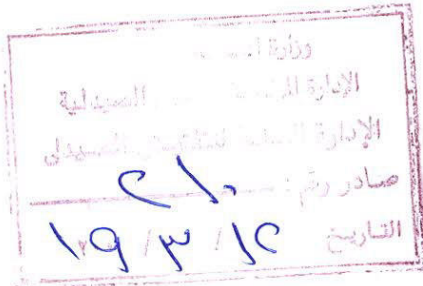 وزارة
الإدارة الصيدلية
الإدارة العامة للتفتيش الصيدلي
صادر رقم : ٢١٠
التاريخ ١٢ / ٣ / ١٩